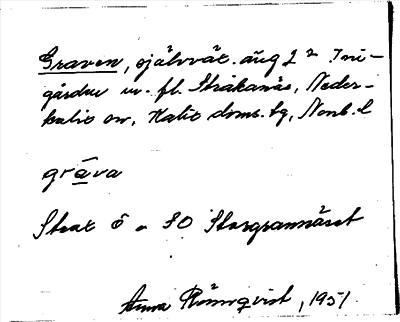 Graven, självvåt. äng 1 2 Tre-
gårdar m. fl. Stråkanäs, Neder-
kalix sn, Kalix doms. bg, Norrb. l
gräva
Strax Ö o SO Storgrannäset
Anna Rönnqvist, 1951